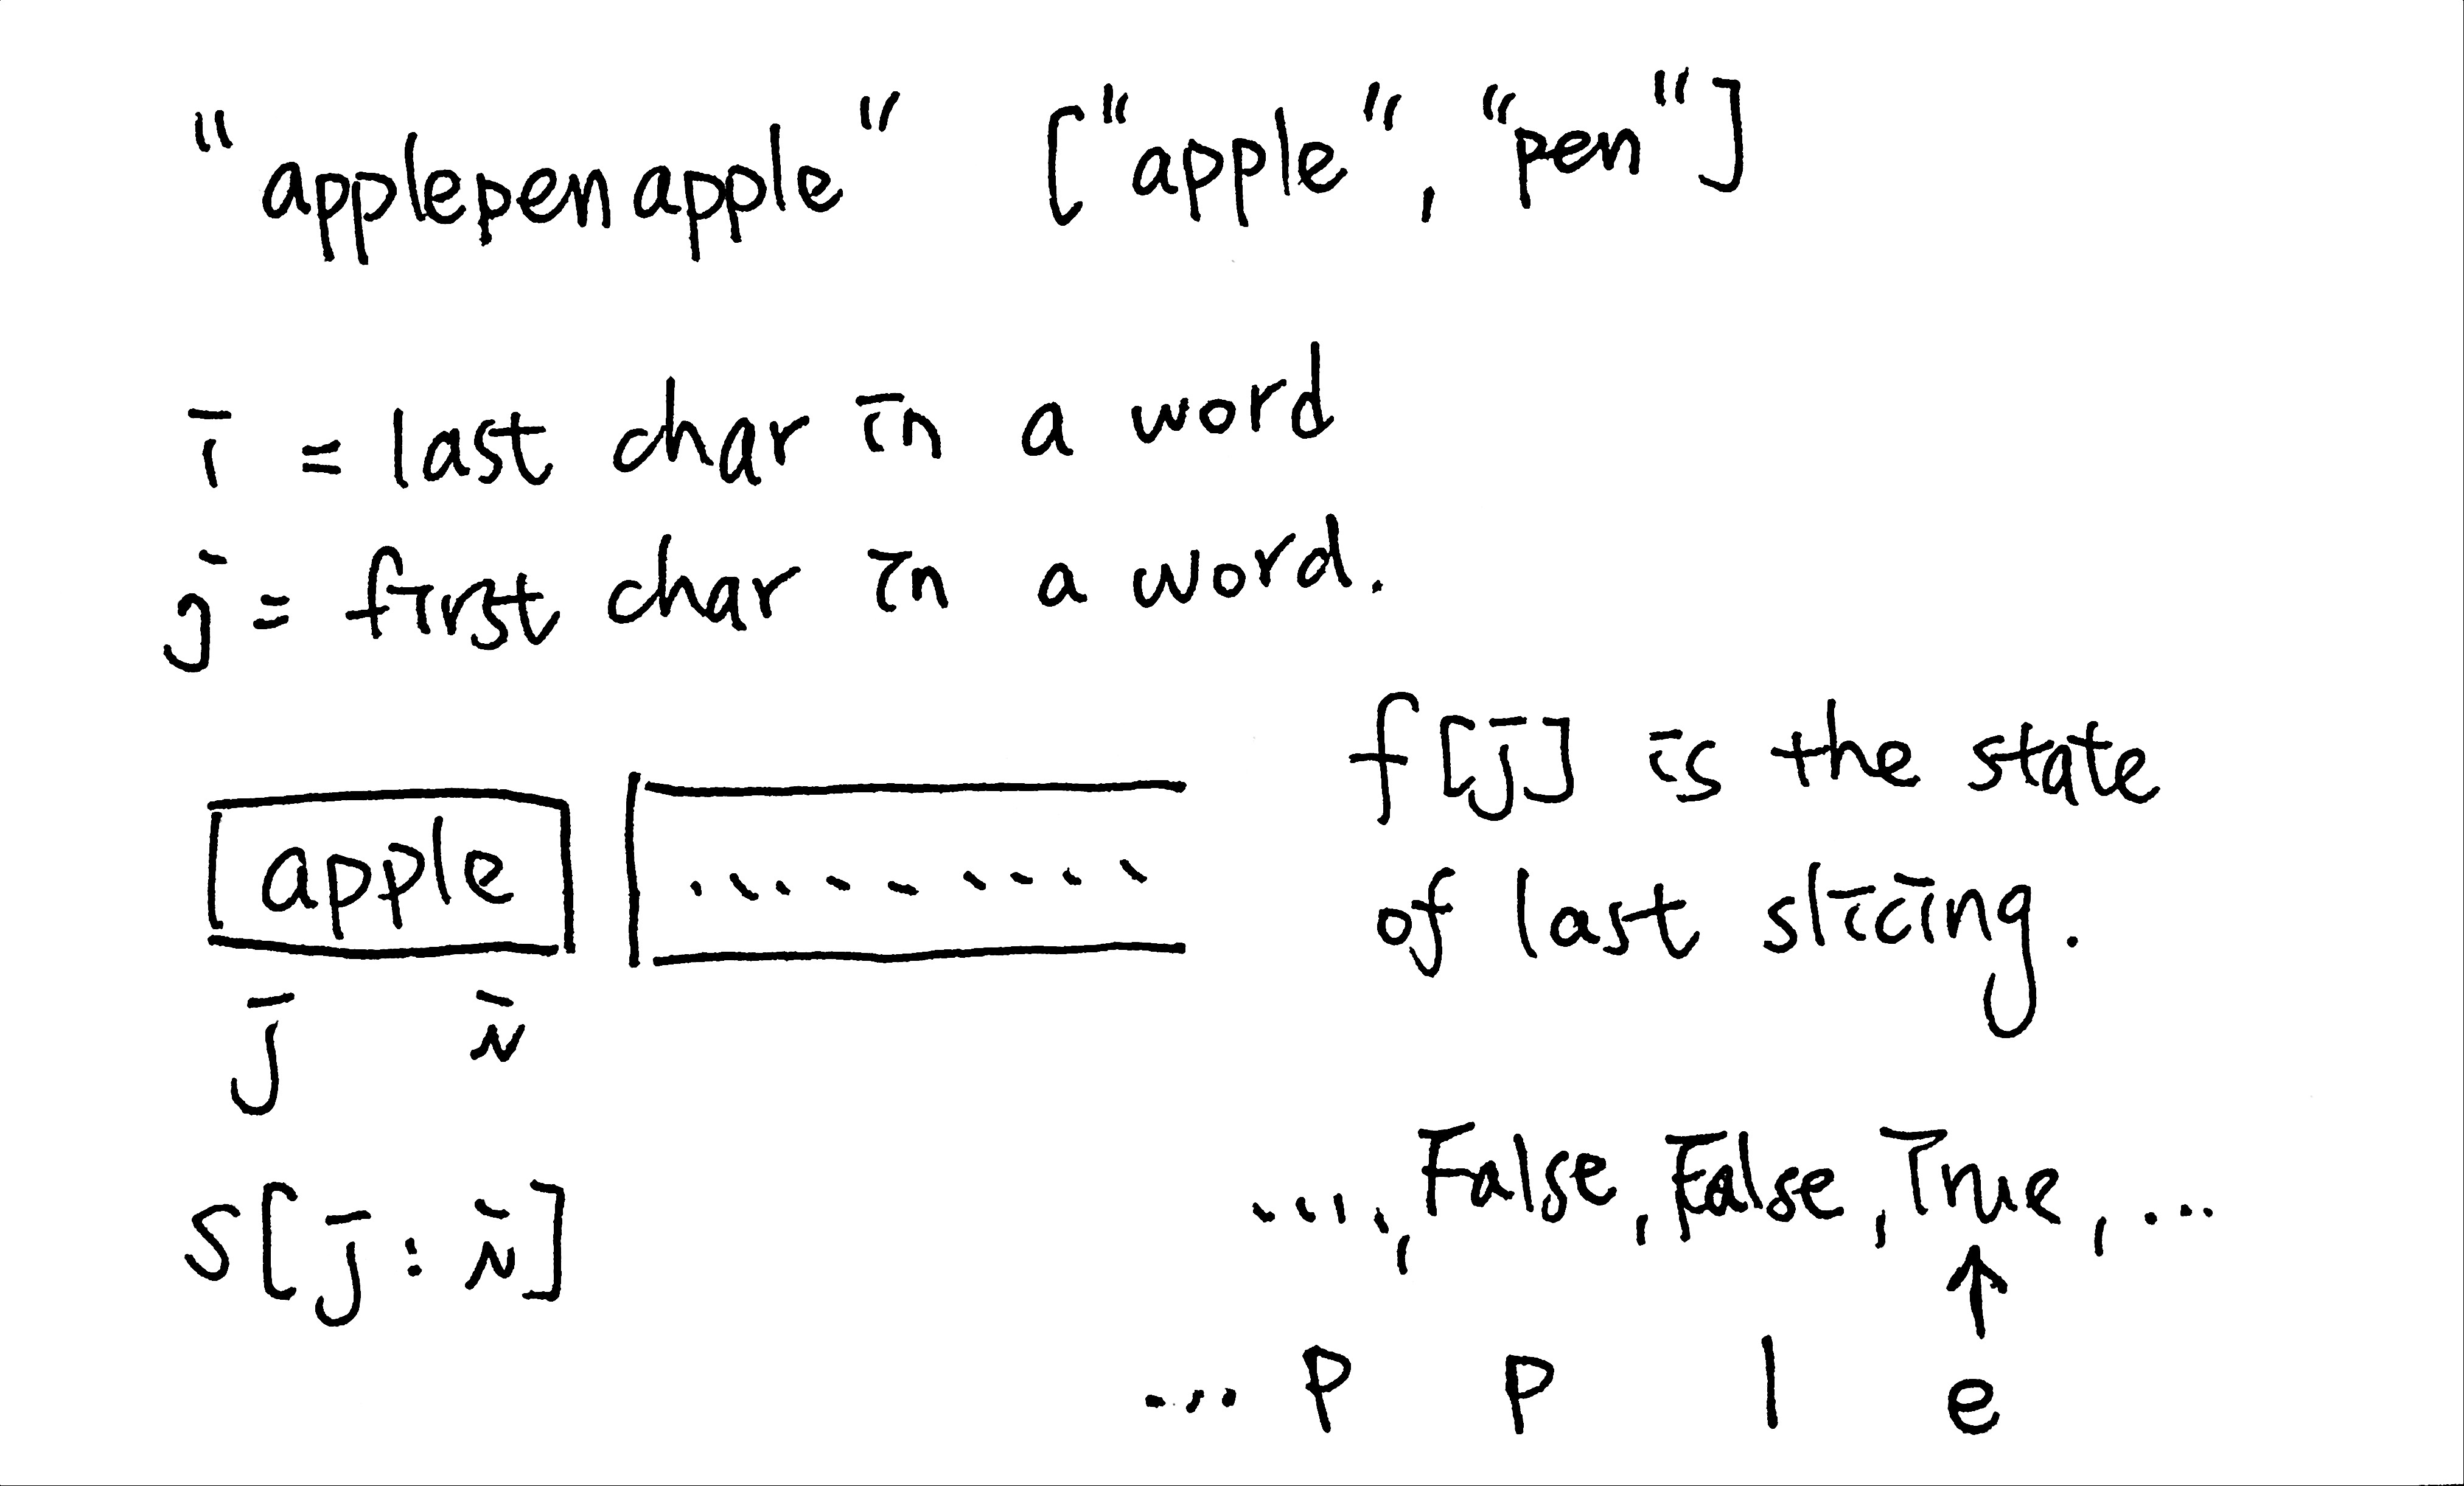 "applepenapple" ["apple", "pen"]
i = last char in a word
j = first char in a word.
f[j] is the state
apple .........
of last slicing.
j i
..., False, False, True, ...
s[j:i]
... p p l e